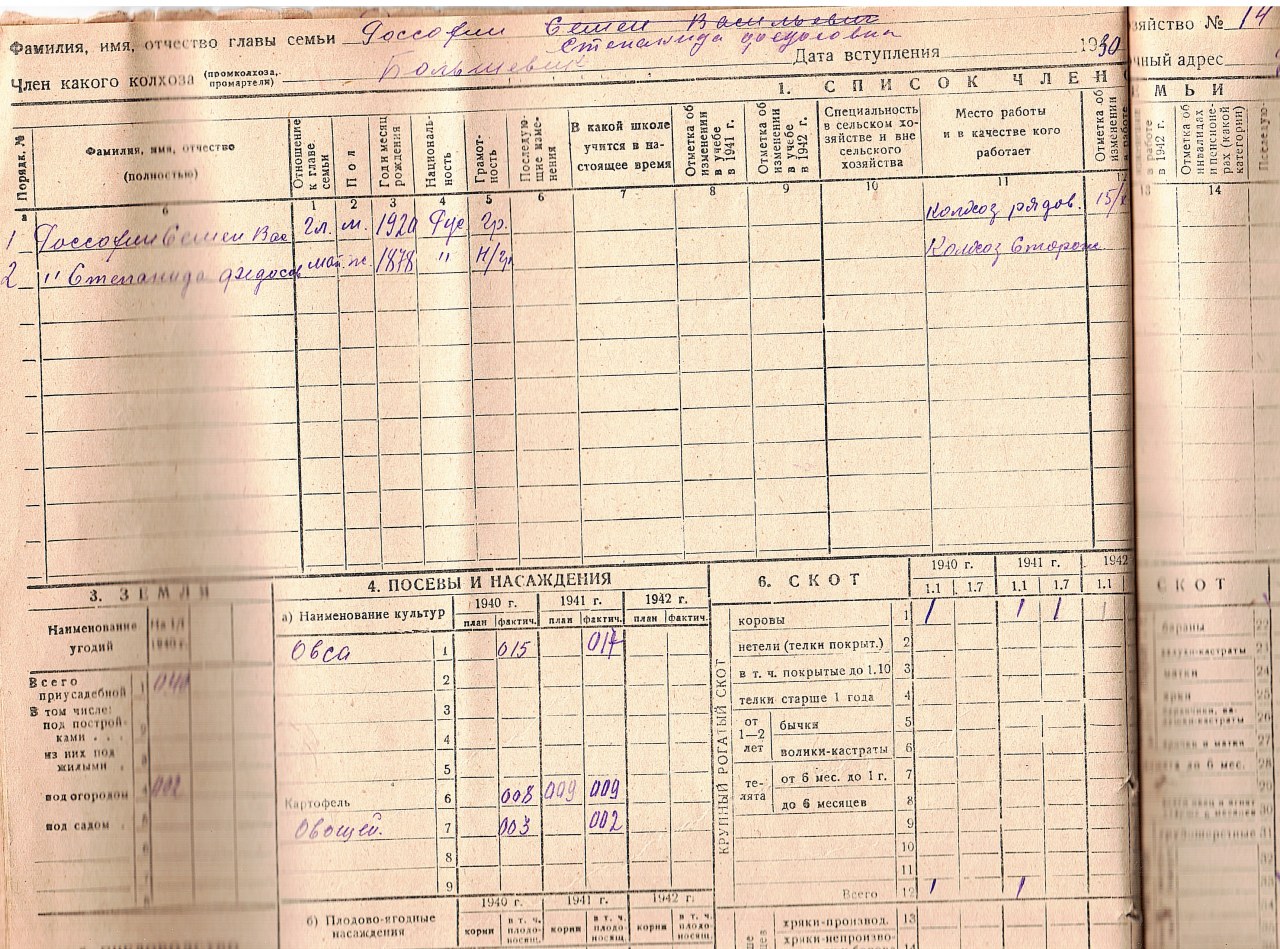 Фамилия, имя, отчество главы семьи Россофин Семен Васильевич
Степанида Федосовна
Член какого колхоза (промколхоза, промартели) Большевик Дата вступления 1930
хозяйство № 14
ный адрес
1. СПИСОК ЧЛЕНО
ЕМЬИ
Порядк. №
Фамилия, имя, отчество (полностью)
Отношение к главе семьи
Пол
Год и месяц рождения
Националь-ность
Грамот-ность
Последую-щие изме-нения
В какой школе учится в на-стоящее время
Отметка об изменении в учебе в 1941 г.
Отметка об изменении в учебе в 1942 г.
Специальность в сельском хо-зяйстве и вне сельского хозяйства
Место работы и в качестве кого работает
Отметка об изменении в работе
в работе в 1942 г.
Отметка об инвалидах и пенсионе-рах (какой категории)
Последую-
а б 1 2 3 4 5 6 7 8 9 10 11 12 13 14
1 Россофин Семен Вас гл. м. 1920 Рус гр. Колхоз рядов. 15/
2 " Степанида Федосов мат. ж. 1878 " н/гр Колхоз Сторож
3. ЗЕМЛИ
Наименование угодий
На 1/I 1940 г.
Всего приусадебной 1 040
В том числе:
под построй-ками . . .
из них под жилыми .
под огородом 002
под садом .
4. ПОСЕВЫ И НАСАЖДЕНИЯ
а) Наименование культур 1940 г. 1941 г. 1942 г.
план фактич. план фактич. план фактич.
Овса 1 015 017
2
3
4
5
Картофель 6 008 009 009
Овощей. 7 003 002
8
9
б) Плодово-ягодные насаждения 1940 г. 1941 г. 1942 г.
корни в т. ч. плодо-носящ. корни в т. ч. плодо-носящ. корни в т. ч. плодо-носящ.
6. СКОТ 1940 г. 1941 г. 1942
1.1 1.7 1.1 1.7 1.1
КРУПНЫЙ РОГАТЫЙ СКОТ
коровы 1 1 1 1
нетели (телки покрыт.) 2
в т. ч. покрытые до 1.10 3
телки старше 1 года 4
от 1—2 лет бычки 5
волики-кастраты 6
те-лята от 6 мес. до 1 г. 7
до 6 месяцев 8
9
10
11
Всего 12 1 1
хряки-производ. 13
хряки-непроизво-
14
СКОТ
бараны 22
валухи-кастраты 23
матки 24
ярки 25
26
27
до 6 мес. 28
29
30
31
32
33
34